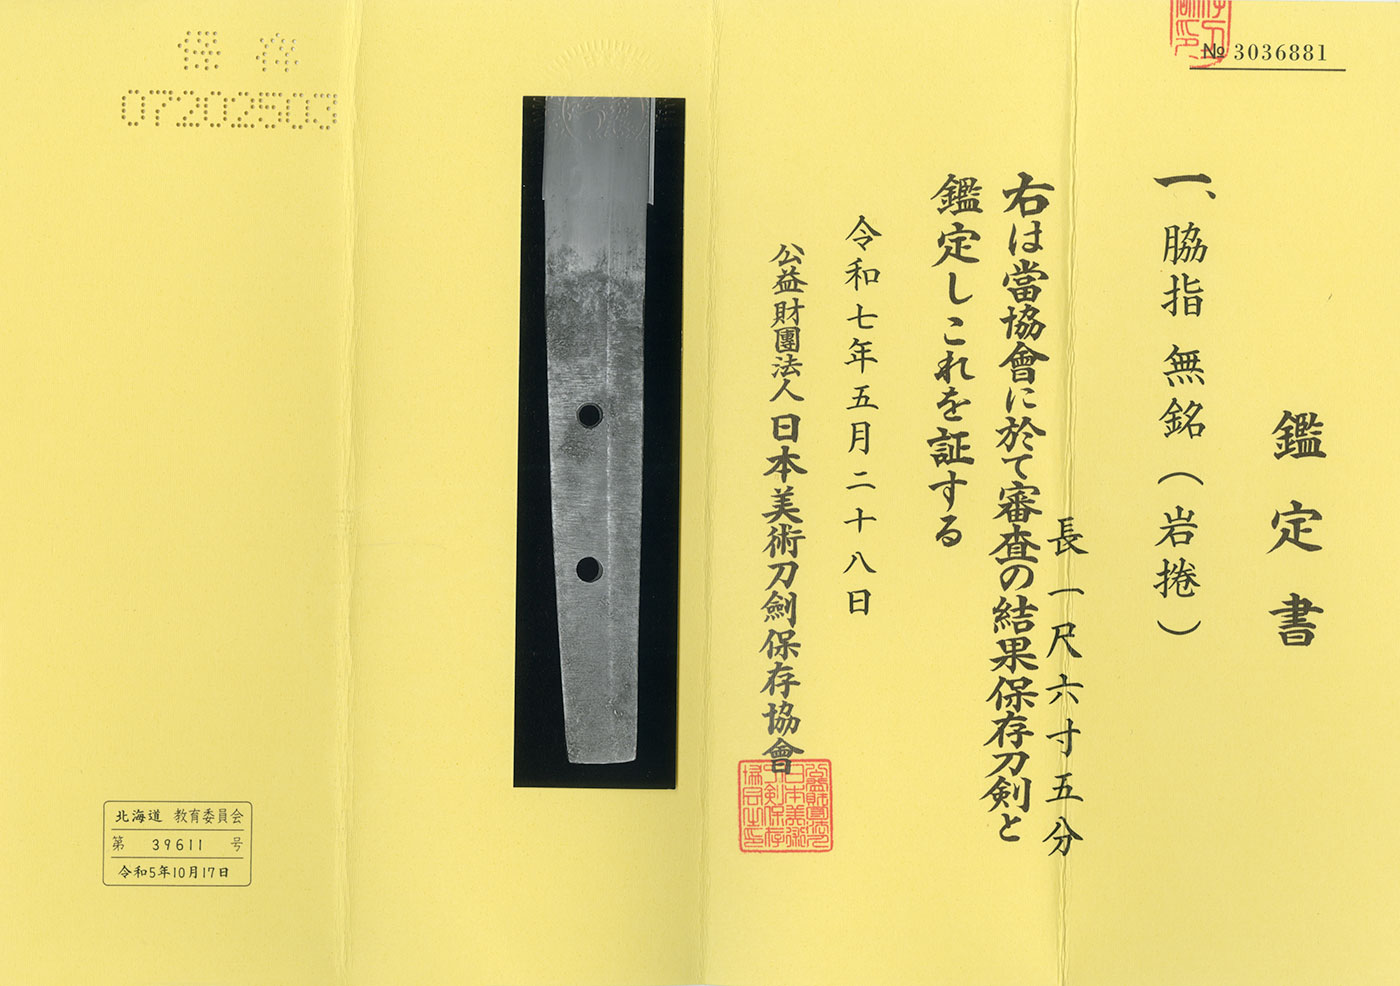 № 3036881
鑑定書
一、脇指 無銘（岩捲）
長一尺六寸五分
右は當協會に於て審査の結果保存刀剣と
鑑定しこれを証する
令和七年五月二十八日
公益財團法人 日本美術刀劍保存協會
保存
07202503
北海道 教育委員会
第 39611 号
令和5年10月17日